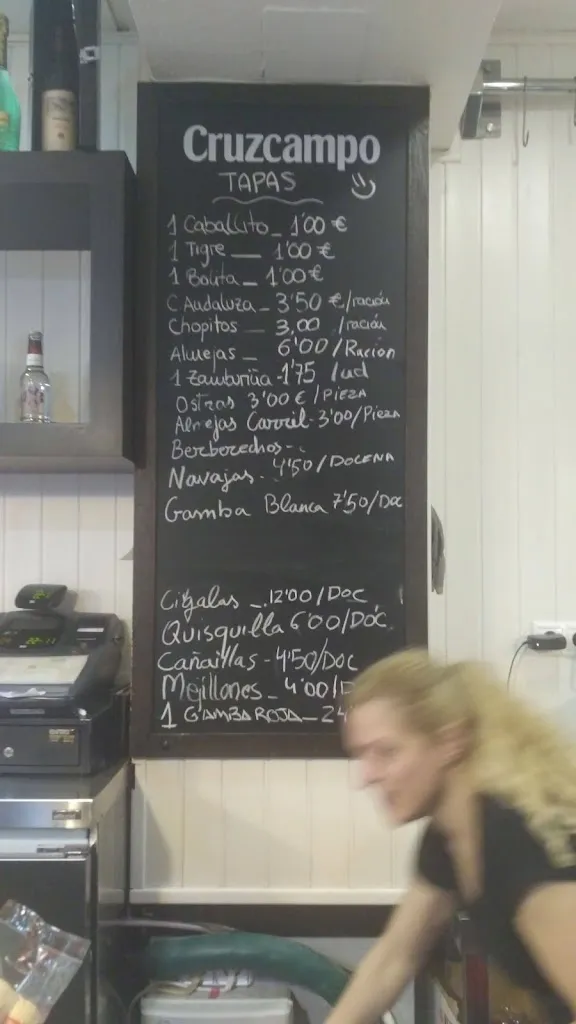 Cruzcampo
TAPAS
1 Caballito - 1'00 €
1 Tigre — 1'00 €
1 Bolita - 1'00 €
C Andaluza - 3'50 €/ración
Chopitos — 3,00 /ración
Almejas - 6'00 / Ración
1 Zamburiña - 1'75 /ud
Ostras 3'00 € / PIEZA
Almejas Carril - 3'00/Pieza
Berberechos - .
Navajas - 4'50/DOCENA
Gamba Blanca 7'50/Doc
Cigalas - 12'00/Doc
Quisquilla 6'00/Doc
Cañaillas - 4'50/Doc
Mejillones - 4'00/D
1 GAMBA ROJA - 24